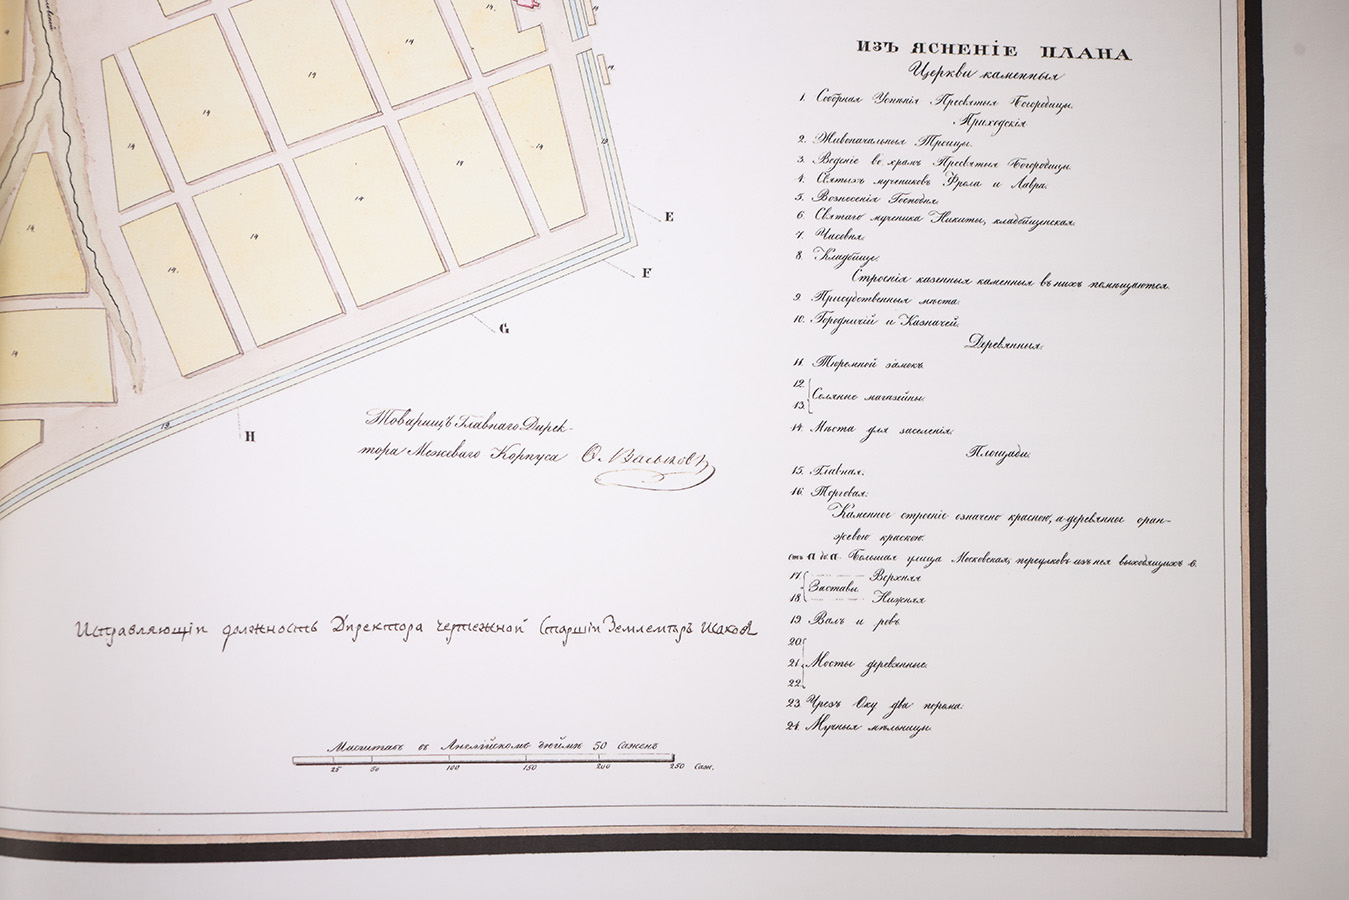 14
14
14
14
14
14
14
14
14
14.
14.
14
14
14
14
19
19.
E
F
G
H
Товарищъ Главнаго Дирек-
тора Межеваго Корпуса
Исправляющій должность Директора чертежной Старшій Землемѣръ Исаковъ
Масштабъ въ Англійскомъ дюймѣ 50 саженъ
25 50 100 150 200 250 Саж.
ИЗЪЯСНЕНІЕ ПЛАНА
Церкви каменныя
1. Соборная Успенія Пресвятыя Богородицы.
Приходскія
2. Живоначальныя Троицы.
3. Веденіе во храмъ Пресвятыя Богородицы.
4. Святыхъ мучениковъ Фрола и Лавра.
5. Вознесенія Господня.
6. Святаго мученика Никиты, кладбищенская.
7. Часовня.
8. Кладбище.
Строенія казенныя каменныя въ нихъ помѣщаются.
9. Присудственныя мѣста.
10. Городничій и Казначей.
Деревянныя.
11. Тюремной замокъ.
12.
13. Соляные магазейны.
14. Мѣста для заселенія.
Площади.
15. Главная.
16. Торговая.
Каменное строеніе означено красною, а деревянное оран-
жевою краскою.
отъ а до а. Большая улица Московская, переулковъ изъ нея выходящихъ 6.
17. Верхняя
Заставы
18. Нижняя
19. Валъ и ровъ
20.
21. Мосты деревянные.
22.
23. Чрезъ Оку два порома.
24. Мучныя мѣльницы.